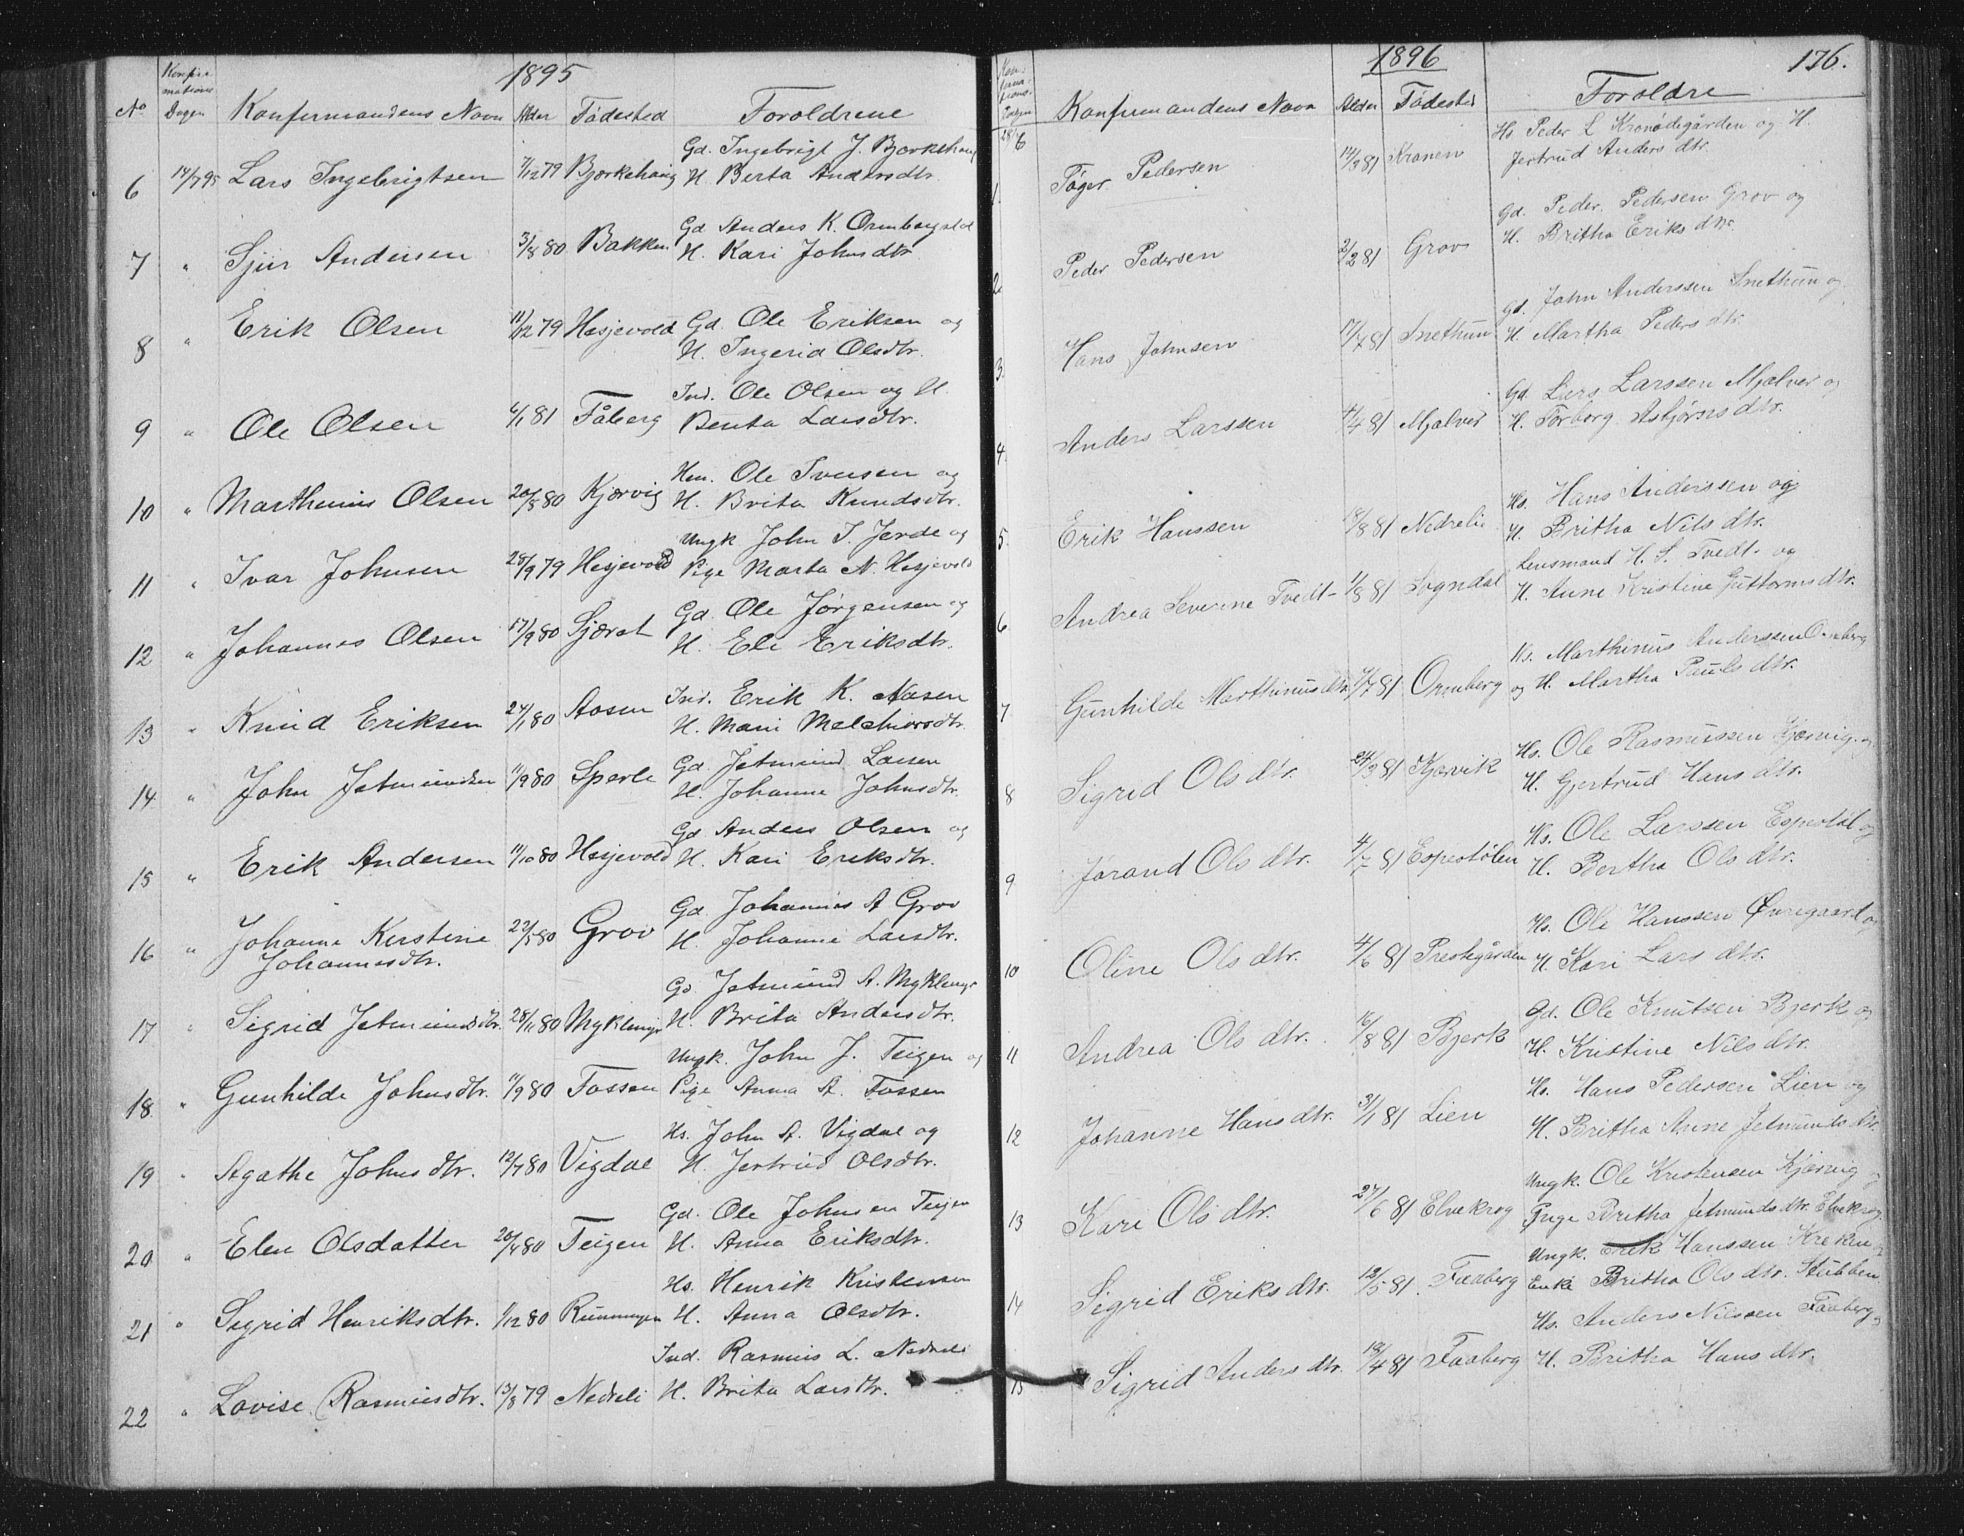 1895
No Konfirmationsdagen Konfermandens Navn Alder Fødested Foroldrene
Gd. Ingebrigt J. Bjørkehaug
6 14/7 95 Lars Ingebrigtsen 7/12 79 Bjørkehaug H. Berta Andersdtr.
Gd Anders K.
7 " Sjur Andersen 3/8 80 Bakken H. Kari Johnsdtr
8 " Erik Olsen 11/12 79 Hesjevold Gd. Ole Eriksen og
H. Ingerid Olsdtr.
Ind. Ole Olsen og H.
9 " Ole Olsen 6/1 81 Fåberg Benta Larsdtr.
Hsm. Ole Iversen og
10 " Marthinus Olsen 20/5 80 Kjørvig H. Brita Knudsdtr.
Ungk John I. Jerde og
11 " Ivar Johnsen 28/9 79 Hesjevold Pige Marta N. Hesjevold
Gd. Ole Jørgensen og
12 " Johannes Olsen 17/9 80 Sjæret H. Eli Eriksdtr.
Ind. Erik K. Aasen
13 " Knud Eriksen 24/1 80 Aasen H. Mari Melchiorsdtr.
Gd. Jetmund Larsen
14 " John Jetmundsen 11/9 80 Sperle H. Johanne Johnsdtr.
Gd Anders Olsen og
15 " Erik Andersen 11/10 80 Hesjevold H. Kari Eriksdtr.
Gd. Johannes A Grov
16 " Johanne Kirstine 22/5 80 Grov H. Johanne Larsdtr.
Johannesdtr.
Gd. Jetmund A. Myklemyr
17 " Sigrid Jetmundsdtr. 28/11 80 Myklemyr H. Brita Andersdtr.
Ungk. John J. Teigen og
18 " Gunhilde Johnsdtr. 11/9 80 Fossen Pige Anna A. Fossen
Hs. John A. Vigdal og
19 " Agathe Johnsdtr. 12/7 80 Vigdal H. Jertrud Olsdtr.
Gd. Ole Johnsen Teigen
20 " Elen Olsdatter 20/4 80 Teigen H. Anna Eriksdtr.
Hs. Henrik Kristensen
21 " Sigrid Henriksdtr. 1/12 80 Runningen H. Anna Olsdtr.
Ind. Rasmus L. Nedreli
22 " Lovise Rasmusdtr. 13/8 79 Nedreli H. Brita Larsdtr.
1896 176.
Konfirmationsdagen Konfirmandens Navn Alder Fødested Foroldre
28/6 Hs Peder L Kronødegården og H.
1. Tøger Pedersen 14/3 81 Kronen Jertrud Anders dtr.
Gd. Peder Pedersen Grov og
2 Peder Pedersen 2/2 81 Grov H. Britha Eriks dtr.
Gd. John Anderssen Snethun og
3. Hans Johnsen 17/7 81 Snethun H. Martha Peders dtr.
Gd. Lars Larssen Mjelver og
4. Anders Larssen 4/4 81 Mjelver H. Torborg Asbjørnsdtr.
Hs. Hans Anderssen og
5. Erik Hanssen 18/8 81 Nedrelie H. Britha Nils dtr.
Lensmand H. S. Tvedt og
6 Andrea Severine Tvedt 1/8 81 Sogndal H. Anne Kristine Guttormsdtr.
Hs. Marthinus Anderssen Ormberg
7 Gunhilde Marthinusdtr. 4/7 81 Ormberg og H. Martha Pauls dtr.
Hs. Ole Rasmussen Kjærvig og
8 Sigrid Ols dtr. 24/3 81 Kjærvik H. Gjertrud Hans dtr.
Hs. Ole Larssen Espestøl og
9 Jorand Ols dtr. 4/7 81 Espestølen H. Bertha Ols dtr.
Hs. Ole Hanssen Øvregaard og
10 Oline Ols dtr. 4/6 81 Prestegården H Kari Lars dtr.
Gd. Ole Knutsen Bjerk og
11 Andrea Ols dtr. 16/8 81 Bjerk H. Kristine Nils dtr.
Hs. Hans Pedersen Lien og
12 Johanne Hans dtr. 31/1 81 Lien H. Britha Anne Jetmunds dtr.
Ungk. Ole Kristensen Kjærvig og
13 Kari Ols dtr. 27/6 81 Elvekrog Pige Britha Jetmunds dtr. Elvekrog
Ungk. Erik Hanssen Kreken og
14 Sigrid Eriks dtr. 12/5 81. Faaberg Enke Britha Ols dtr. Stubben
Hs. Anders Nilssen Faaberg og
15 Sigrid Anders dtr. 18/4 81 Faaberg H. Britha Hans dtr.